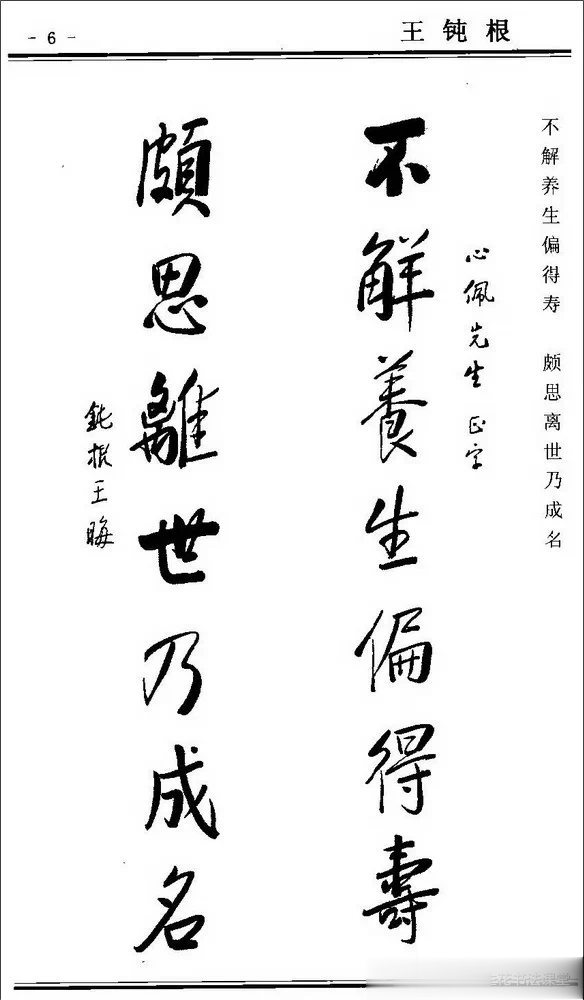 - 6 -
王钝根
不解养生偏得寿 颇思离世乃成名
心佩先生正字
不解養生偏得壽
頗思離世乃成名
鈍根王晦